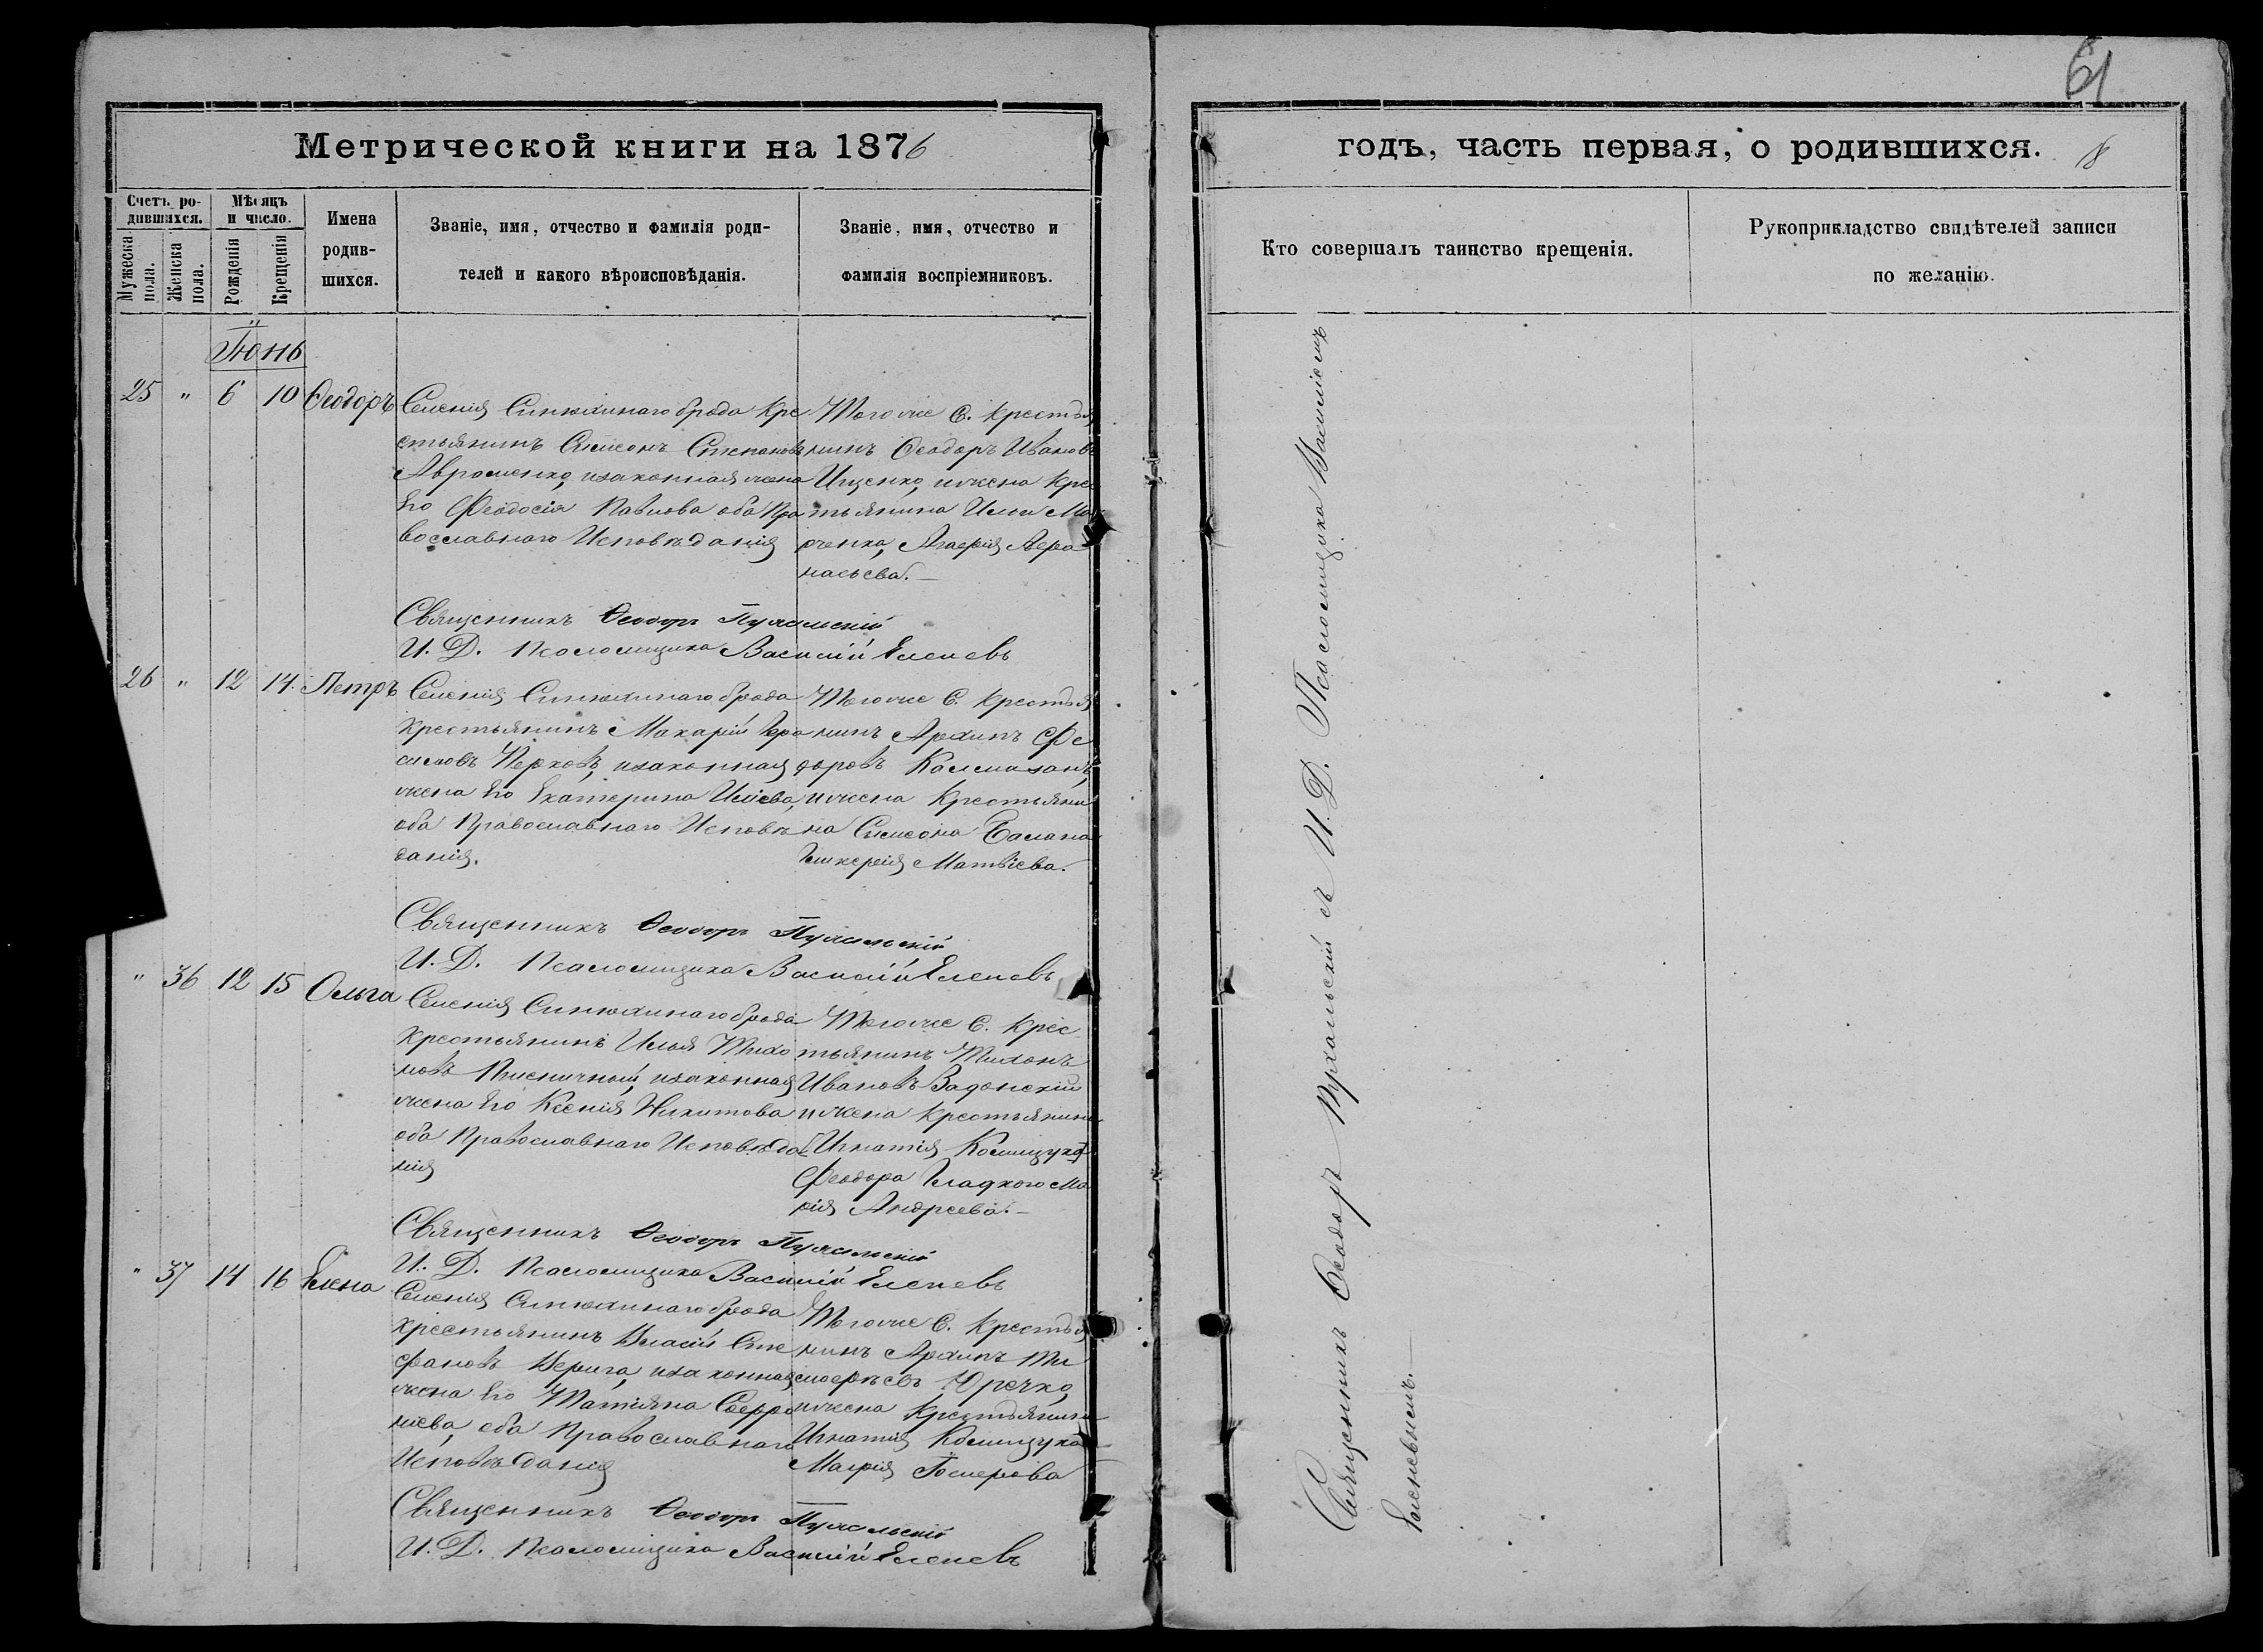 61
Метрической книги на 1876
годъ, часть первая, о родившихся.
18
Счетъ ро-
дившихся.
Мужеска
пола.
Женска
пола.
Мѣсяцъ
и число.
Рожденія
Крещенія
Имена
родив-
шихся.
Званіе, имя, отчество и фамилія роди-
телей и какого вѣроисповѣданія.
Званіе, имя, отчество и
фамилія воспріемниковъ.
Кто совершалъ таинство крещенія.
Рукоприкладство свидѣтелей записи
по желанію.
Іюнь
25 " 6 10 Ѳеодоръ
Селенія Синюхинаго брода Кре
стьянинъ Симеонъ Степановъ
Авраменко, изаконная жена
Его Феодосія Павлова оба Пра
вославнаго Исповѣданія
Тогоже С. Крестья
нинъ Ѳеодоръ Ивановъ
Ищенко, ижена Крес
тьянина Ильи
Агафія Афа
насьева.
Священникъ Ѳеодоръ Пухальскій
И. Д. Псаломщика Василій Еленевъ
26 " 12 14 Петръ
Селенія Синюхинаго брода
Крестьянинъ Макарій Гера
симовъ Церковъ, изаконная
жена Его Екатерина Ильева,
оба Православнаго Исповѣ
данія.
Тогоже С. Крестья
нинъ Архипъ Фе
доровъ
ижена Крестьяни
на Симеона
Гликерія Матвіева.
Священникъ Ѳеодоръ Пухальскій
И. Д. Псаломщика Василій Еленевъ
" 36 12 15 Ольга
Селенія Синюхинаго брода
Крестьянинъ Илья Тихо
новъ Пшеничный, изаконная
жена Его Ксенія Никитова
оба Православнаго Исповѣда
нія
Тогоже С. Крес
тьянинъ Тихонъ
Ивановъ Задонскій
ижена Крестьянина
Игнатія
Феодора Гладкого Ма
рія Андреева.
Священникъ Ѳеодоръ Пухальскій
И. Д. Псаломщика Василій Еленевъ
" 37 14 16 Елена
Селенія Синюхинаго брода
Крестьянинъ Власій Сте
фановъ Верига, изаконная
жена Его Татіяна Софро
ніева, оба Православнаго
Исповѣданія
Тогоже С. Крестья
нинъ Архипъ Ти
мофѣевъ Юречко,
ижена Крестьянина
Игнатія
Марія
Священникъ Ѳеодоръ Пухальскій
И. Д. Псаломщика Василій Еленевъ
Священникъ Ѳеодоръ Пухальскій съ И. Д. Псаломщика Василіемъ
Еленевымъ.